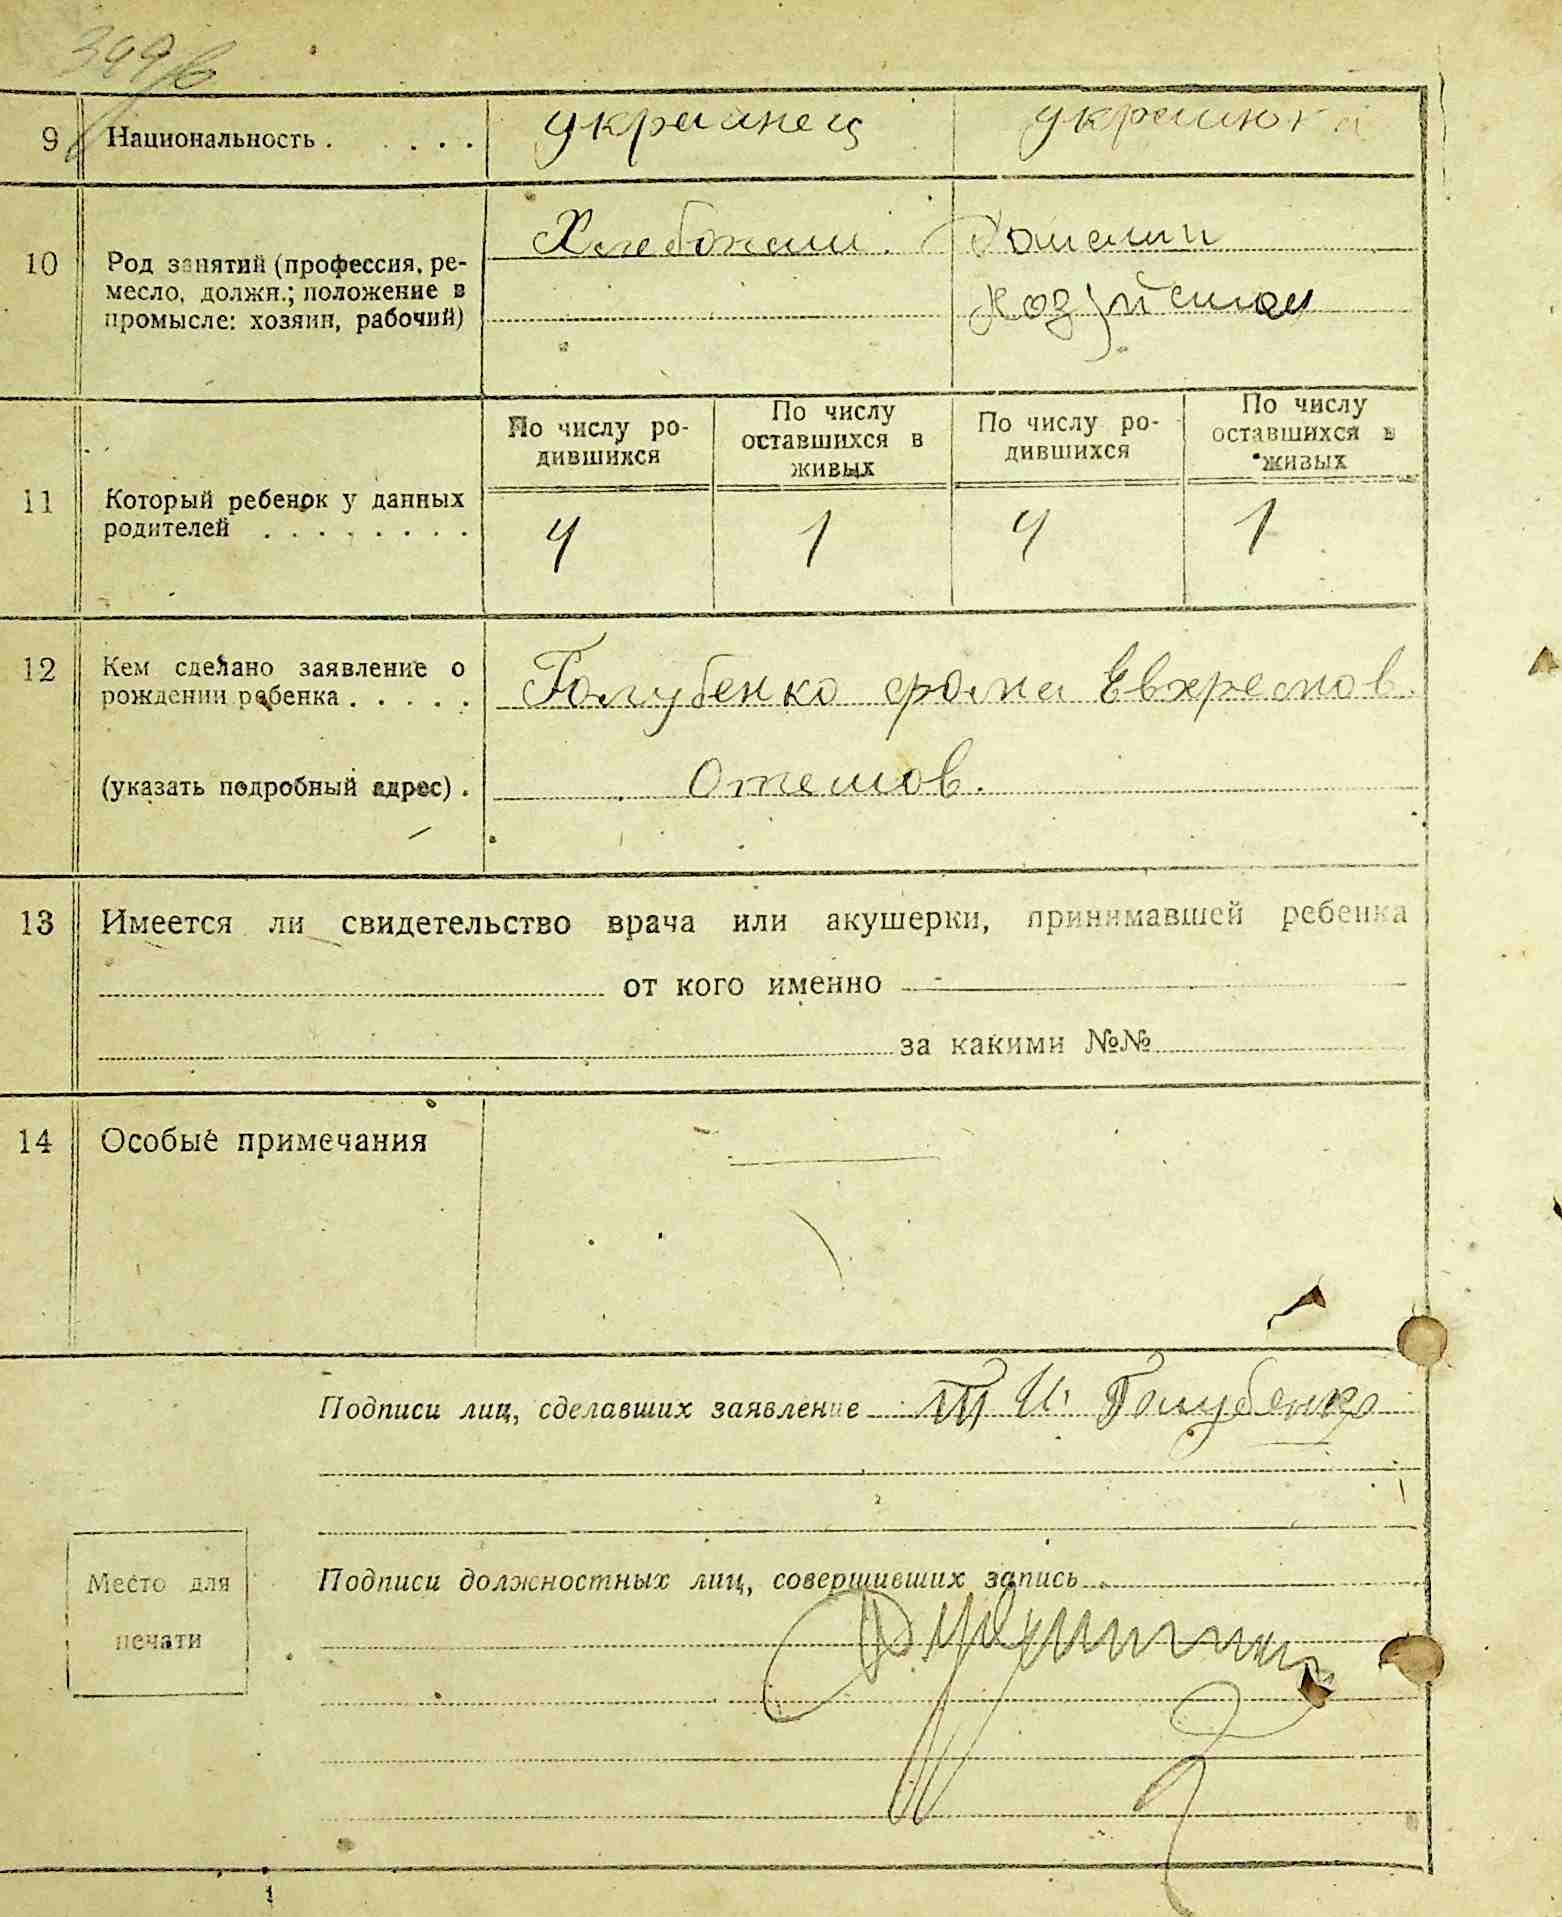 9 Национальность . . . . . украинец украинка
10 Род занятий (профессия, ре-
месло, должн.; положение в
промысле: хозяин, рабочий)
Хлебопаш. Домашн
хозяйством
По числу ро-
дившихся
По числу
оставшихся в
живых
По числу ро-
дившихся
По числу
оставшихся в
живых
11 Который ребенок у данных
родителей . . . . . . . .
4 1 4 1
12 Кем сделано заявление о
рождении ребенка . . . . .
Голубенко фома
(указать подробный адрес) .
13 Имеется ли свидетельство врача или акушерки, принимавшей ребенка
от кого именно
за какими №№
14 Особые примечания
Подписи лиц, сделавших заявление Голубенко
Подписи должностных лиц, совершивших запись
Место для
печати
1